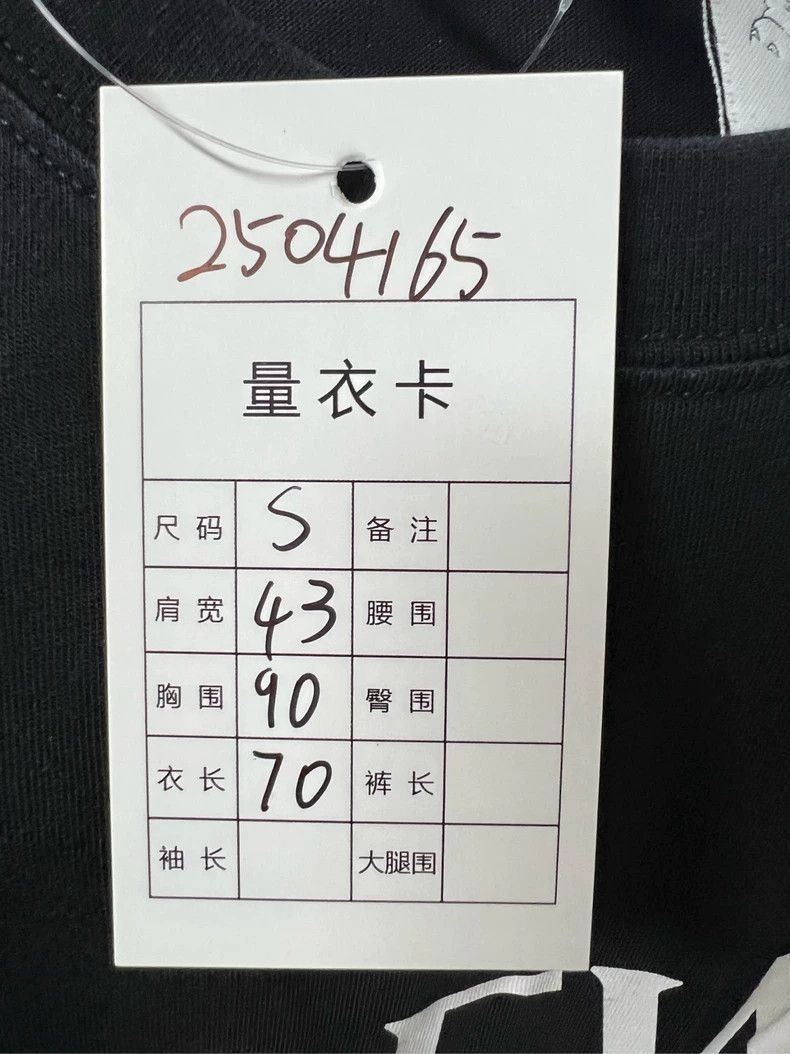 2504165
量衣卡
尺码 S 备注
肩宽 43 腰围
胸围 90 臀围
衣长 70 裤长
袖长 大腿围